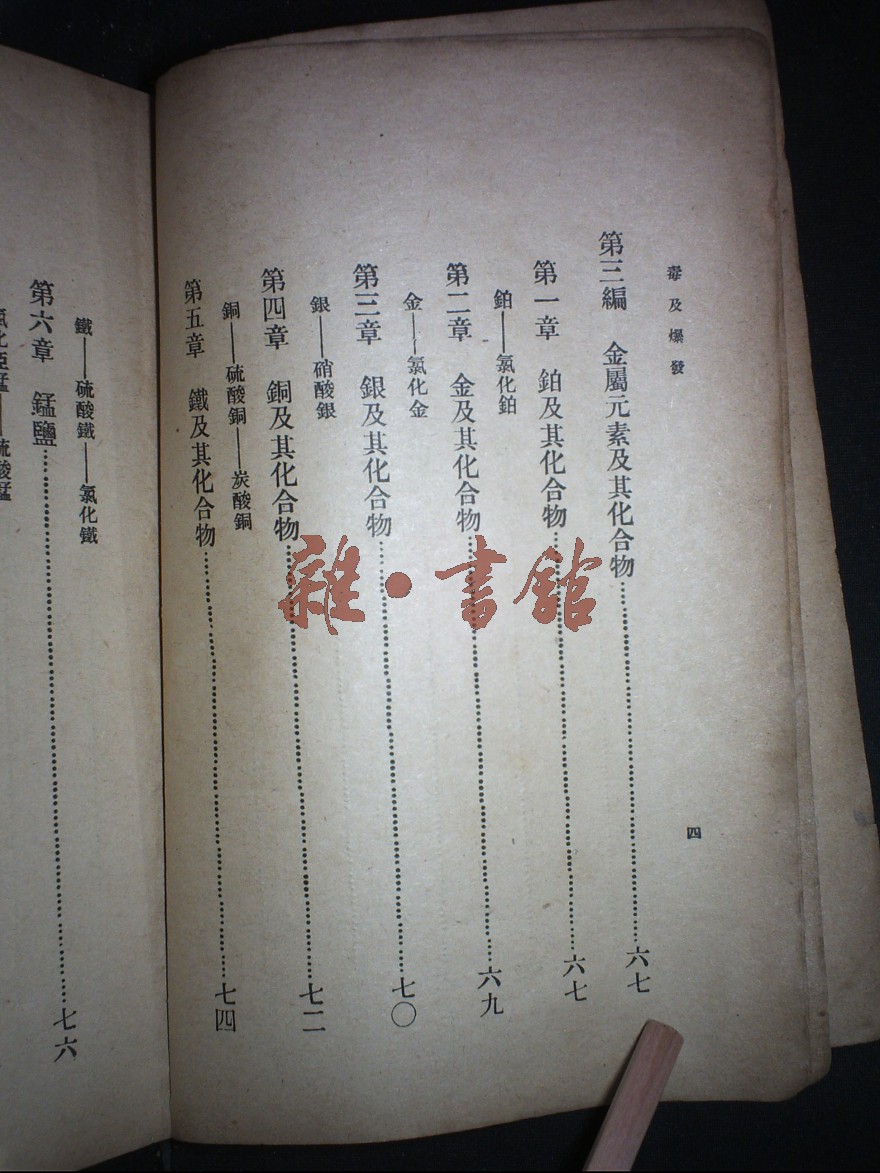 毒及爆發
四
第三編 金屬元素及其化合物……六七
第一章 鉑及其化合物……六七
鉑——氯化鉑
第二章 金及其化合物……六九
金——氯化金
第三章 銀及其化合物……七〇
銀——硝酸銀
第四章 銅及其化合物……七二
銅——硫酸銅——炭酸銅
第五章 鐵及其化合物……七四
鐵——硫酸鐵——氯化鐵
第六章 錳鹽……七六
雜·書館